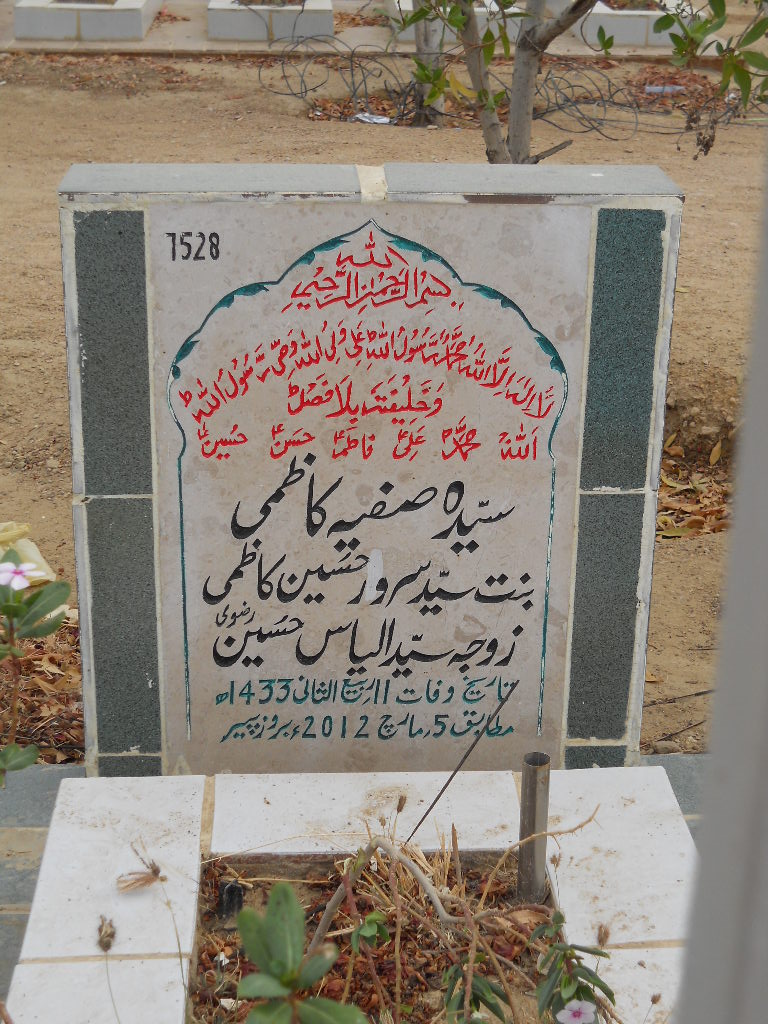 1528
بسم اللہ الرحمٰن الرحیم
لا الہ الا اللہ محمد رسول اللہ علی ولی اللہ وصی رسول اللہ
وخلیفتہ بلا فصل
اللہ محمدؐ علیؑ فاطمہؑ حسنؑ حسینؑ
سیّدہ صفیہ کاظمی
بنت سیّد سرور حسین کاظمی
زوجہ سیّد الیاس حسین رضوی
تاریخ وفات 11 ربیع الثانی 1433ھ
مطابق 5 مارچ 2012ء بروز پیر